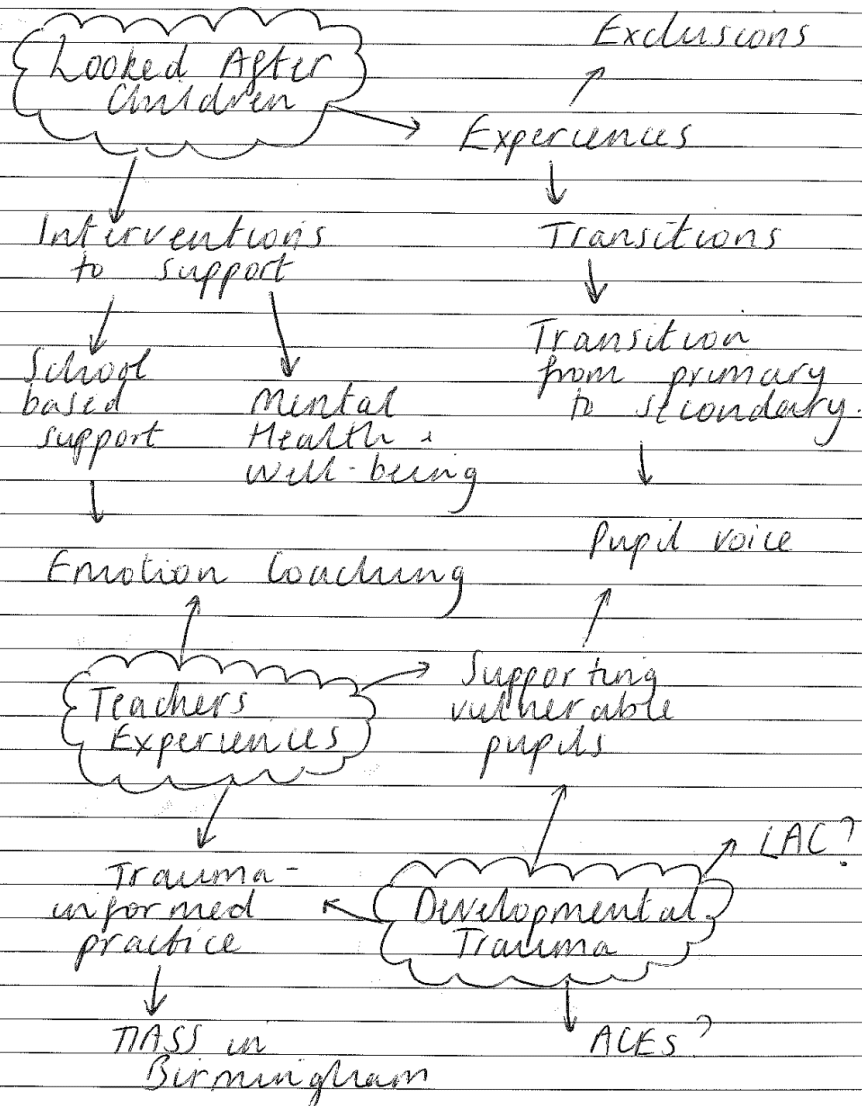 Exclusions
Looked After
Children
Experiences
Interventions
to support
Transitions
School
based
support
Mental
Health &
Well-being
Transition
from primary
to secondary.
Pupil voice
Emotion Coaching
Teachers
Experiences
Supporting
vulnerable
pupils
LAC?
Trauma-
informed
practice
Developmental
Trauma
ACEs?
in
Birmingham